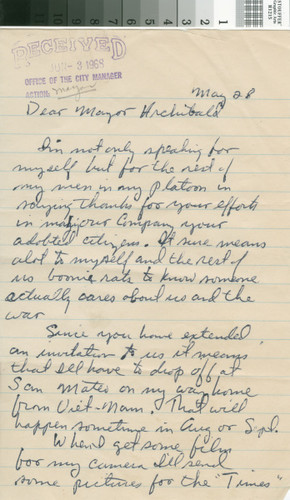 RECEIVED
JUN - 3 1968
OFFICE OF THE CITY MANAGER
ACTION: mayor
May 28
Dear Mayor Archibald
I'm not only speaking for
myself but for the rest of
my men in my platoon in
saying thanks for your efforts
in making our Company your
adobted citizens. It sure means
alot to myself and the rest of
us boonie rats to know someone
actually cares about us and the
war
Since you have extended
an invitation to us it means
that I'll have to drop off at
San Mateo on my way home
from Viet-Nam. That will
happen sometime in Aug or Sept.
When I get some film
for my camera I'll send
some pictures for the "Times"